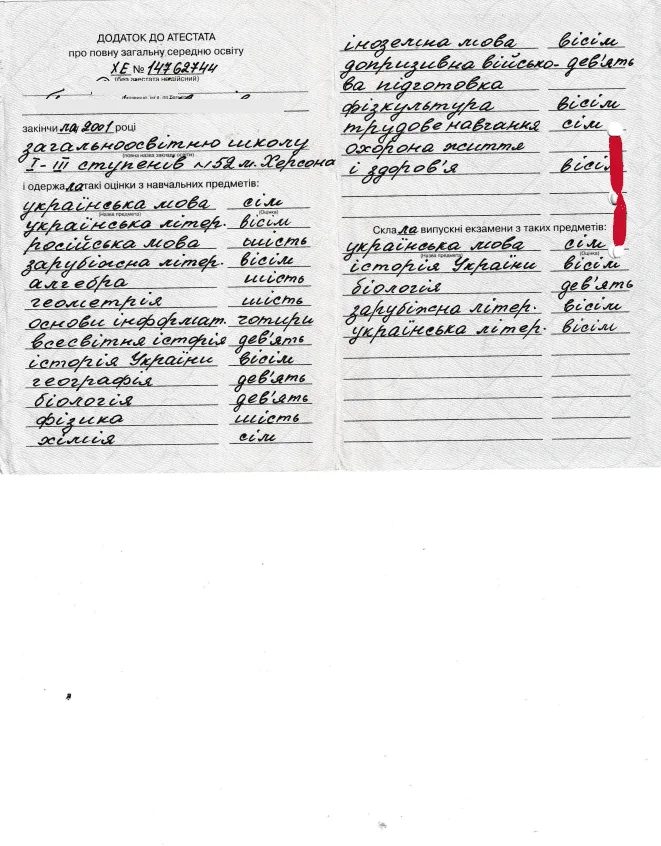 ДОДАТОК ДО АТЕСТАТА
про повну загальну середню освіту
ХЕ № 14762744
(без атестата недійсний)
закінчила 2001 році
загальноосвітню школу
(повна назва закладу освіти)
І - ІІІ ступенів №52 м. Херсона
і одержала такі оцінки з навчальних предметів:
українська мова сім
(Назва предмета) (Оцінка)
українська літер. вісім
російська мова шість
зарубіжна літер. вісім
алгебра шість
геометрія шість
основи інформат. чотири
всесвітня історія дев'ять
історія України вісім
географія дев'ять
біологія дев'ять
фізика шість
хімія сім
іноземна мова вісім
допризивна військо- дев'ять
ва підготовка
фізкультура вісім
трудове навчання сім
охорона життя
і здоров'я вісім
Склала випускні екзамени з таких предметів:
українська мова сім
(Назва предмета) (Оцінка)
історія України вісім
біологія дев'ять
зарубіжна літер. вісім
українська літер. вісім